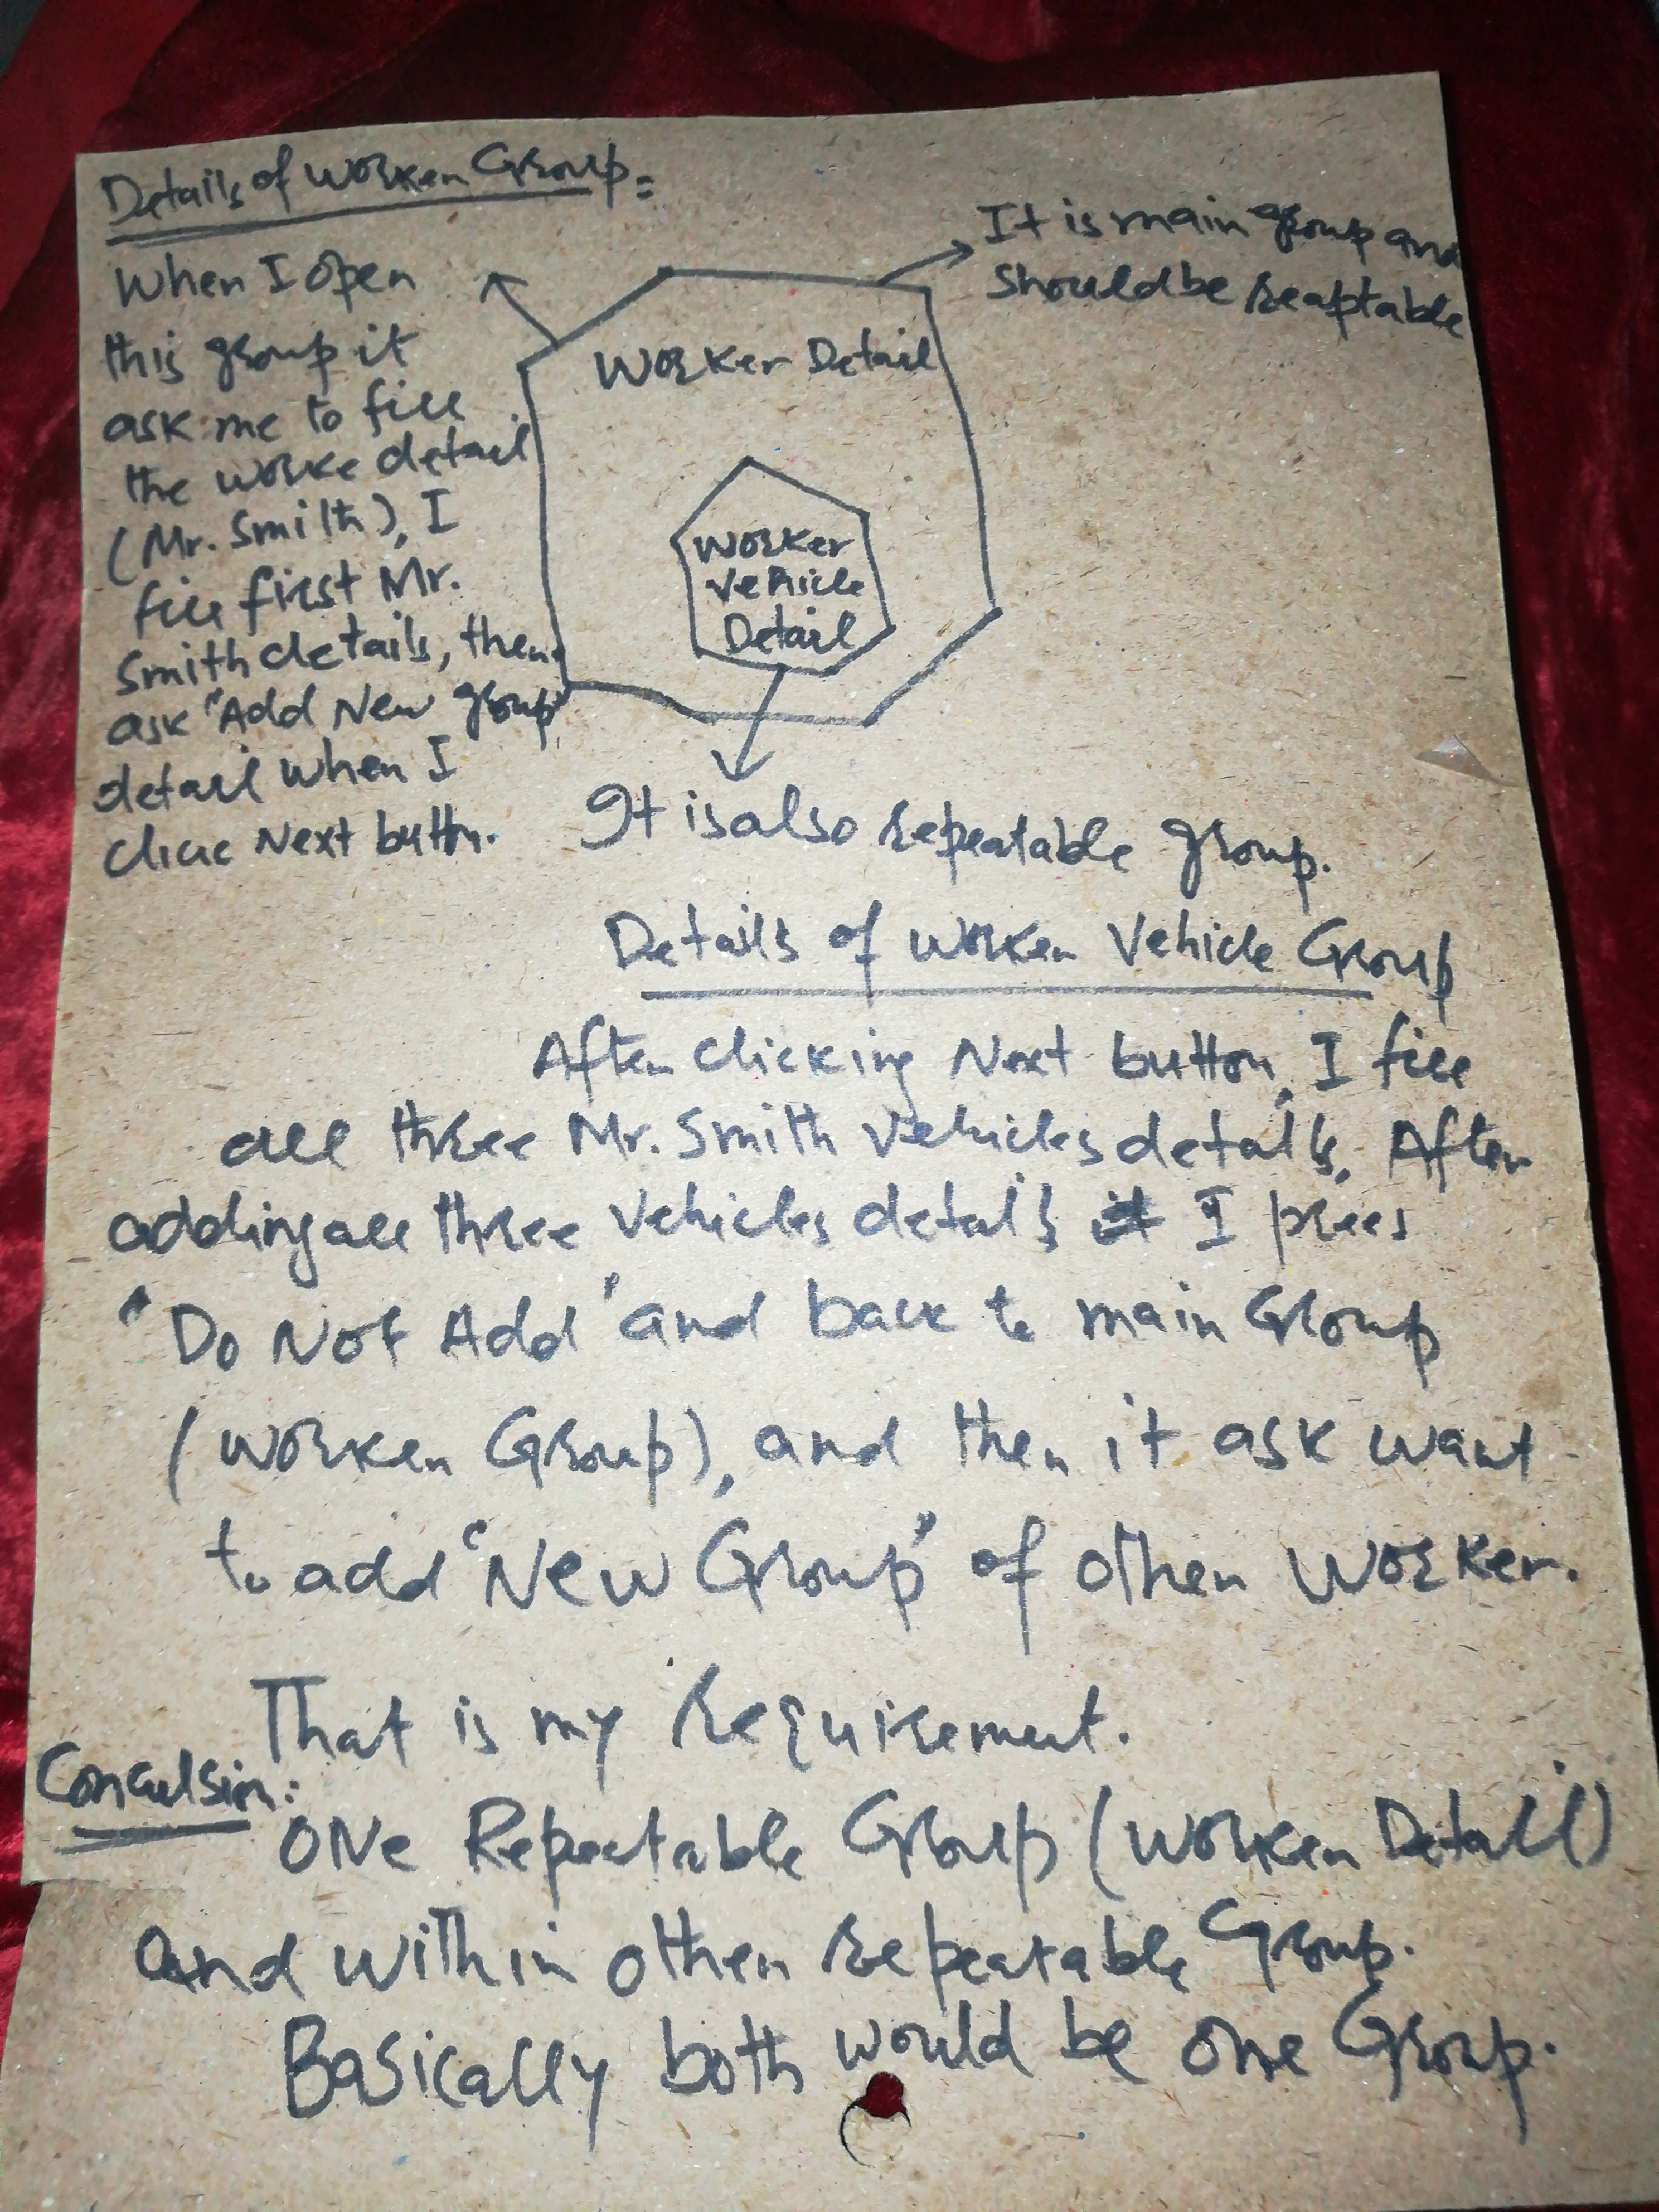 Details of Worker Group:
When I open
this group it
ask me to fill
the worke detail
(Mr. Smilth), I
fill first Mr.
Smith details, then
ask "Add New group"
detail when I
click Next button.
It is main group and
should be reaptable
Worker Detail
Worker
Vehicle
Detail
It is also repeatable group.
Details of Worker Vehicle Group
After clicking Next button, I fill
all three Mr. Smith Vehicles details. After
adding all three Vehicles details I press
"Do Not Add" and back to main Group
(Worker Group), and then it ask want
to add "New Group" of other Worker.
That is my requirement.
Conculsin:
ONe Repeatable Group (Worker Detail)
And within other repeatable Group.
Basically both would be one Group.